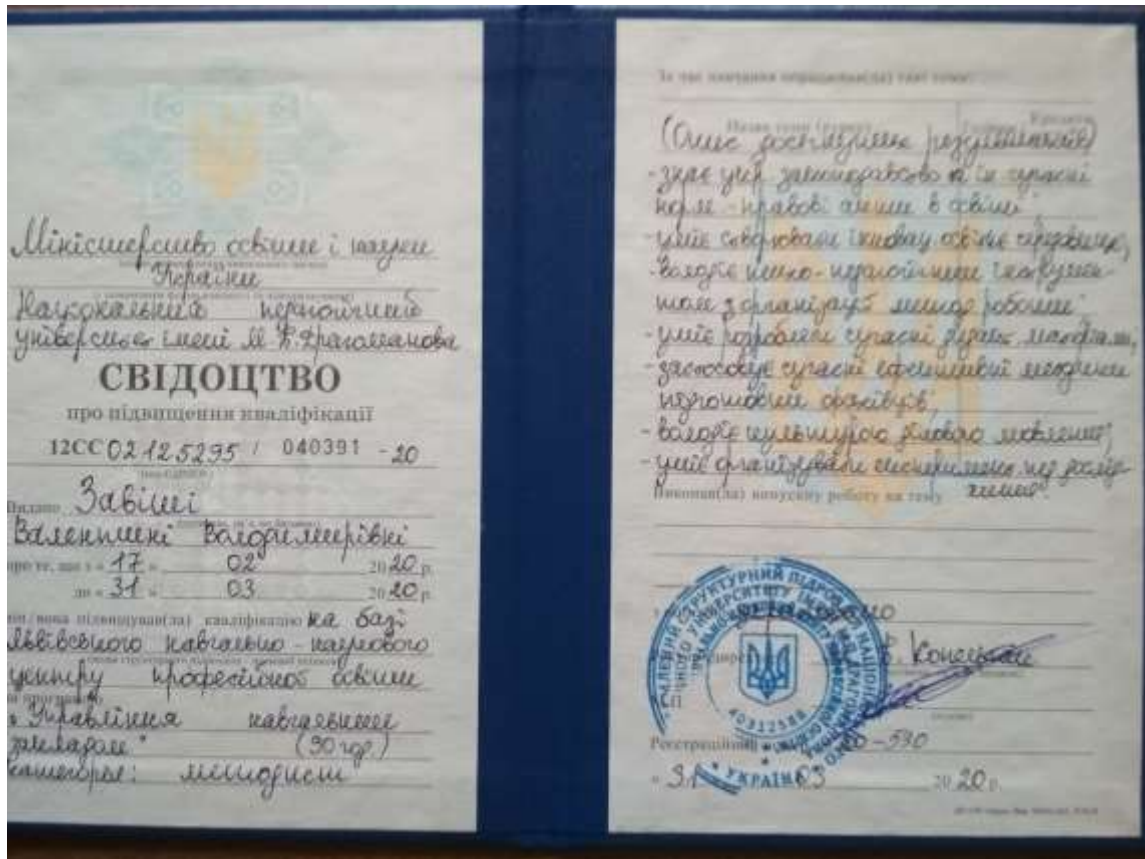 Міністерство освіти і науки
України
Національний педагогічний
університет імені М.П.Драгоманова
СВІДОЦТВО
про підвищення кваліфікації
12СС 02125295 / 040391 - 20
Видано Завіші
Валентині Володимирівні
про те, що з « 17 » 02 20 20 р.
до « 31 » 03 20 20 р.
він/вона підвищував(ла) кваліфікацію на базі
Львівського навчально-наукового
центру професійної освіти
за програмою
„Управління навчальним
закладом" (90 год.)
категорія: методист
За час навчання опрацював(ла) такі теми:
Назва теми Кредити
(Опис досягнутих результатів)
- знає укр. законодавство та ін. сучасні
норм.-правові акти в освіті;
- уміє створювати інновац. освітнє середовище;
- володіє психо-педагогічним інструмен-
том з організації метод. роботи;
- уміє розробляти сучасні дидакт. матеріали,
- застосовує сучасні ефективні методики
підготовки фахівців;
- володіє культурою ділового мовлення;
- уміє організувати експеримент. пед. дослід-
ження.
Виконав(ла) випускну роботу на тему
В. Конецький
40312588
УКРАЇНА
Реєстраційний 0-530
« 31 03 20 20 р.